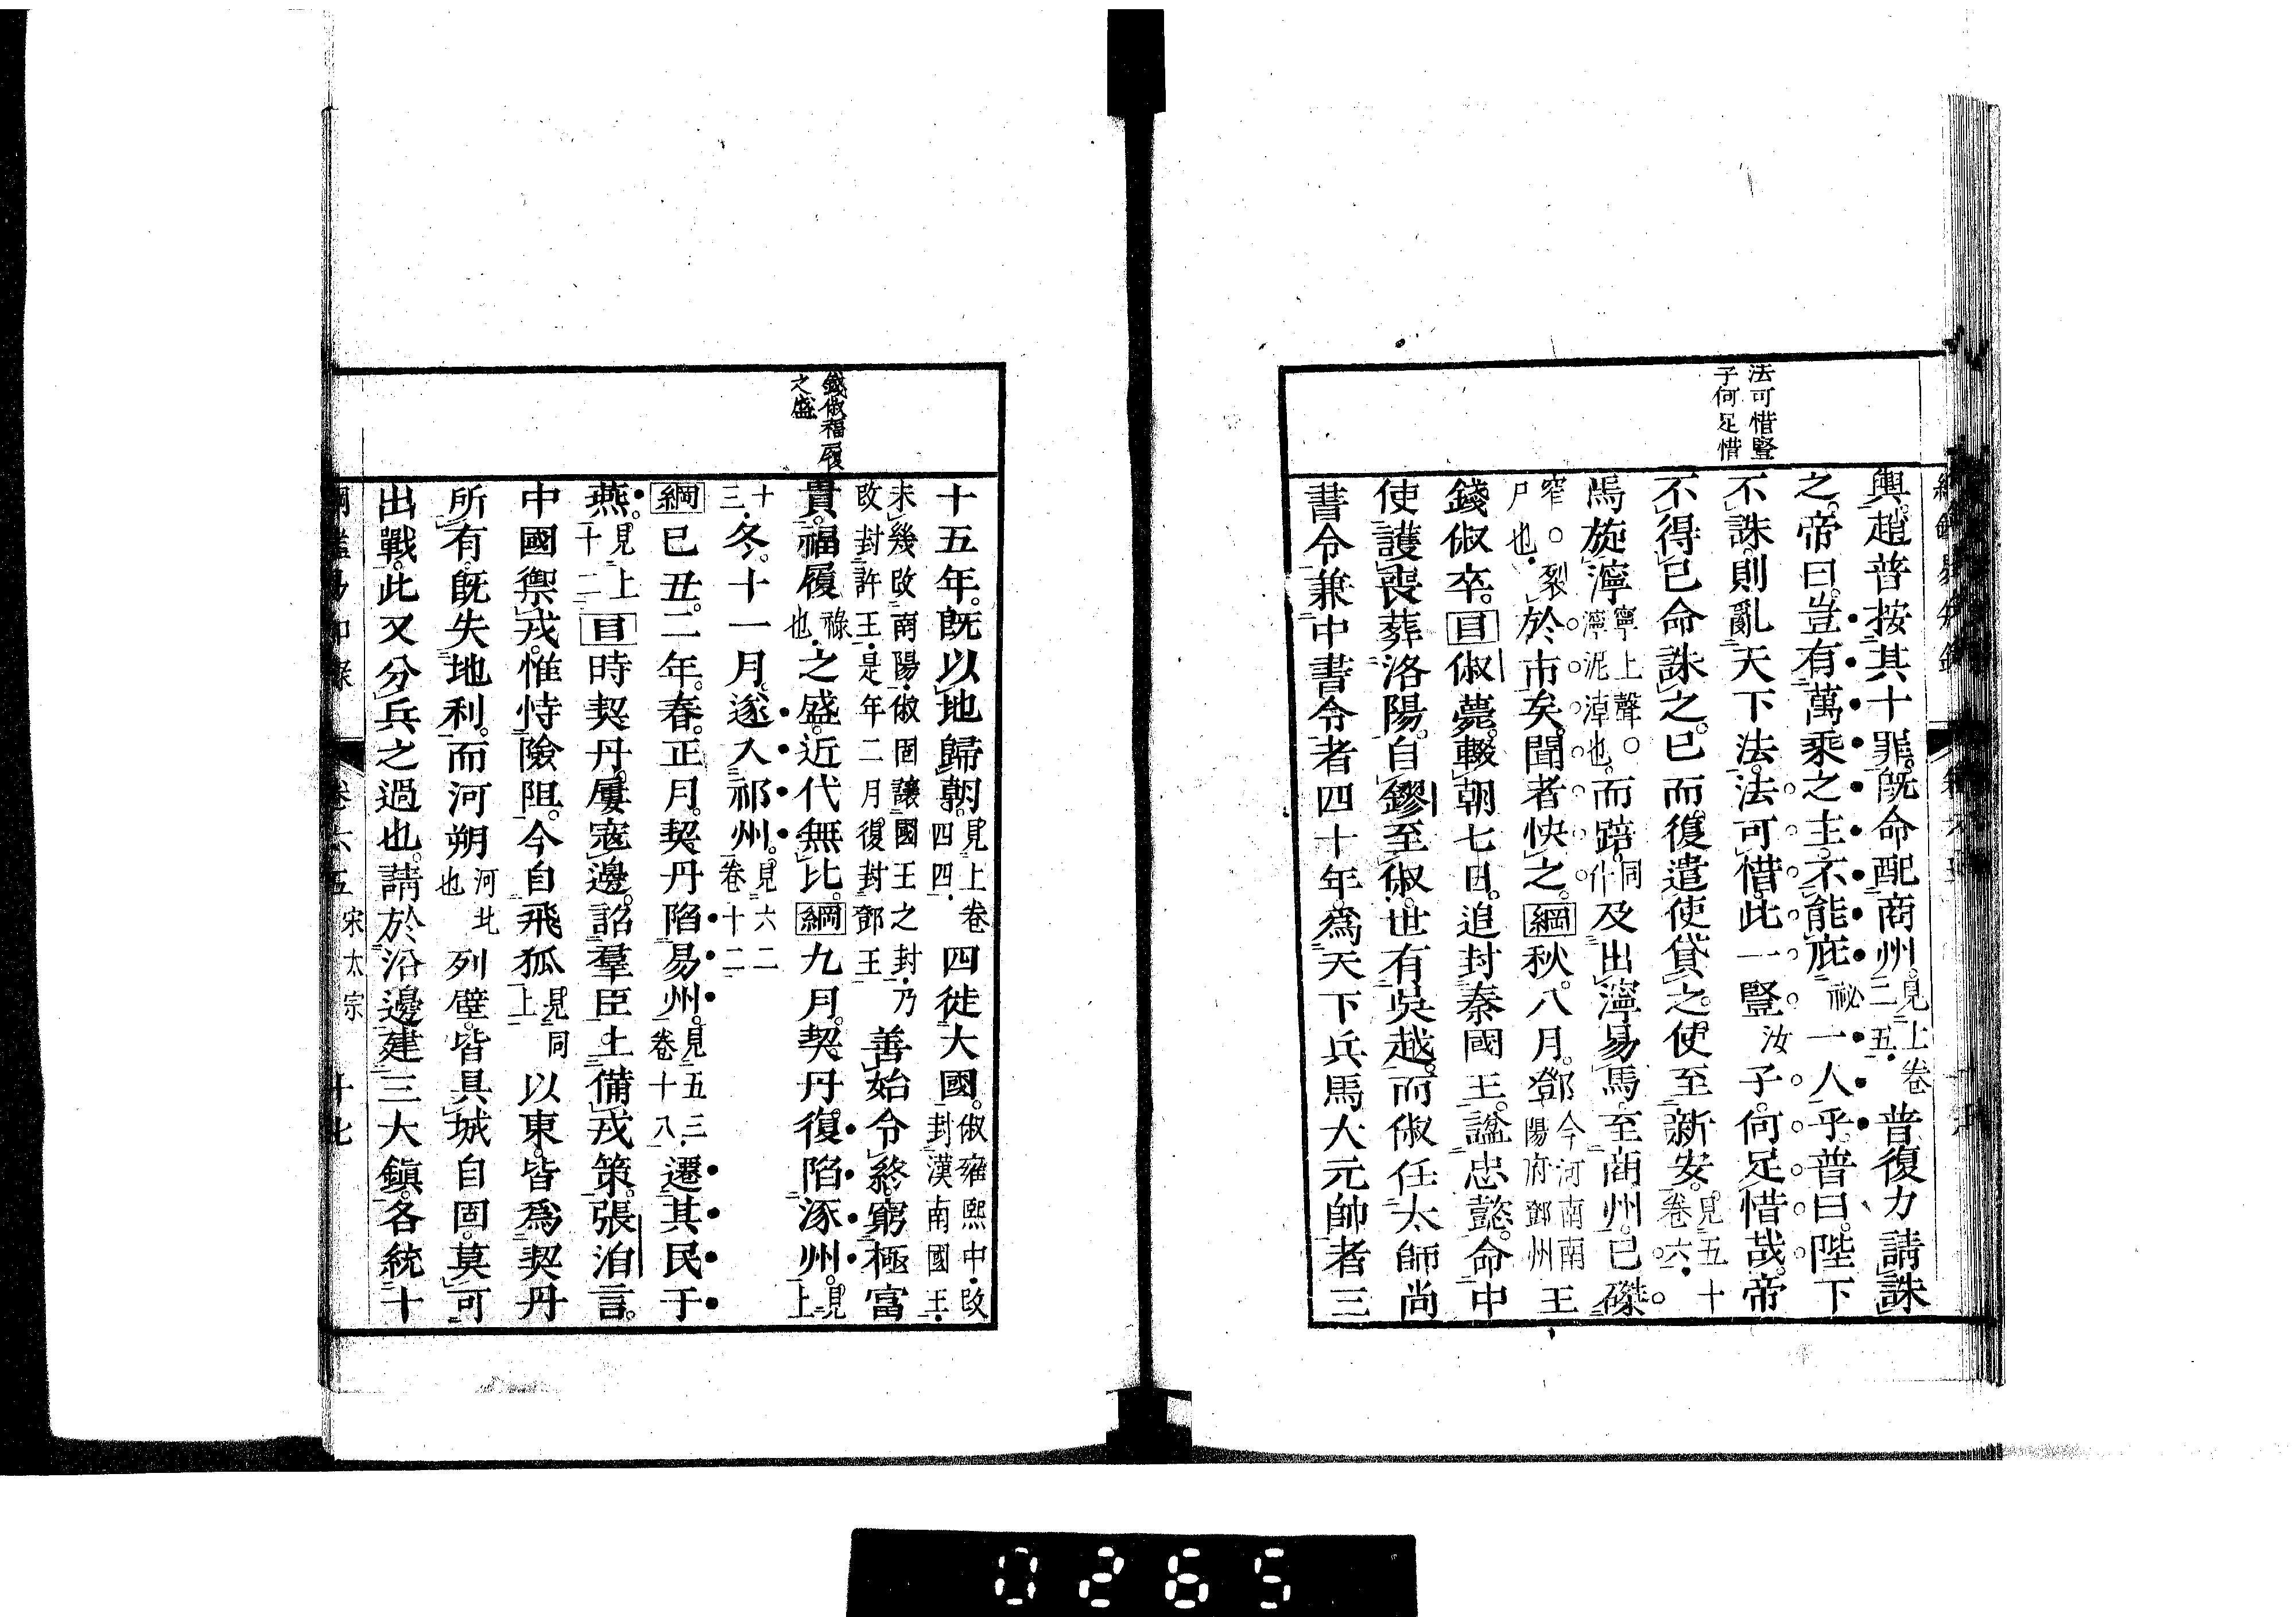 法可惜豎
子何足惜
輿。趙普按其十罪。既命配商州。見上卷二五。普復力請誅
之。帝曰。豈有萬乘之主。不能庇祕一人乎。普曰。陛下
不誅。則亂天下法。法可惜。此一豎汝子。何足惜哉。帝
不得已命誅之。已而。復遣使貸之。使至新安。見五十卷六。
馬旋濘寧上聲。○濘泥淖也。而踣。同仆及出濘易馬。至商州。已磔
窄。○裂尸也。於市矣。聞者快之。綱秋。八月。鄧今河南南陽府鄧州王
錢俶卒。目俶薨。輟朝七日。追封秦國王。謚忠懿。命中
使護喪葬洛陽。自鏐至俶。世有吳越。而俶任太師尚
書令兼中書令者四十年。為天下兵馬大元帥者三
錢俶福履
之盛
十五年。既以地歸朝。見上卷四四。四徙大國。俶雍熙中。改封漢南國王。
未幾改南陽。俶固讓國王之封。乃改封許王。是年二月。復封鄧王善始令終。窮極富
貴。福履祿也。之盛。近代無比。綱九月。契丹。復陷涿州。見上
十三。冬。十一月。遂入祁州。見六二卷十二
綱己丑。二年。春。正月。契丹陷易州。見五三卷十八。遷其民于
燕。見上十二目時契丹。屢寇邊。詔羣臣。上備戎策。張洎言。
中國禦戎。惟恃險阻。今自飛狐見同上以東。皆為契丹
所有。既失地利。而河朔河北也列壁。皆具城自固。莫可
出戰。此又分兵之過也。請於沿邊建三大鎮。各統十
卷六五 宋太宗 十七
0265